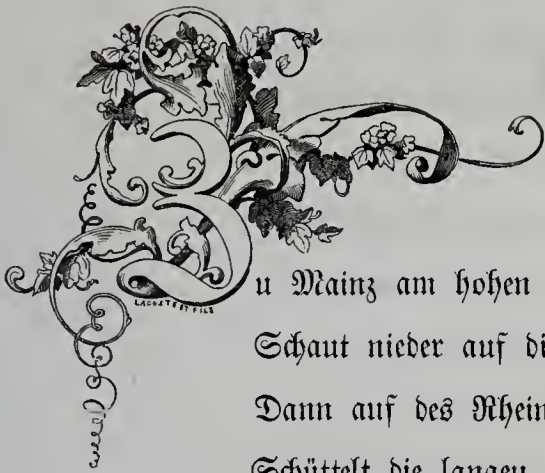 LACOSTE ET FILS
Zu Mainz am hohen
Schaut nieder auf di
Dann auf des Rhein
Schüttelt die langen